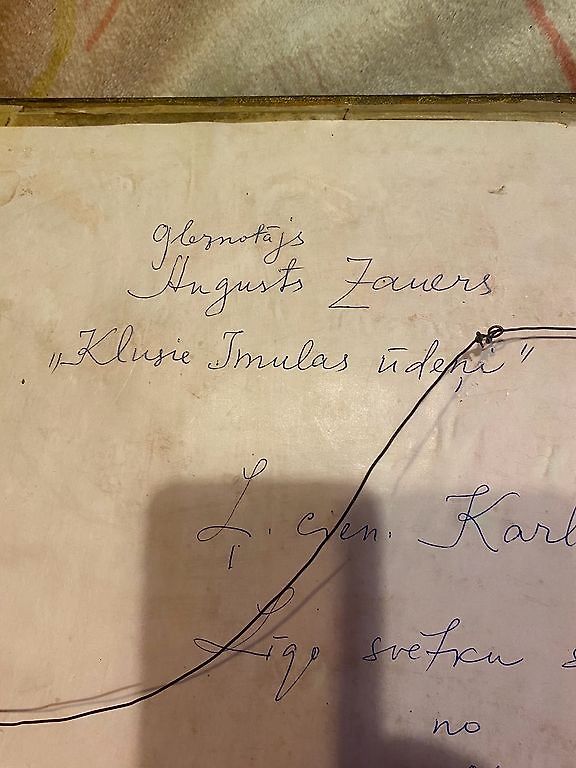 gleznotājs
Augusts Zauers
„Klusie Imulas ūdeņi”
Ļ. cien. Karl
Līgo svētku s
no